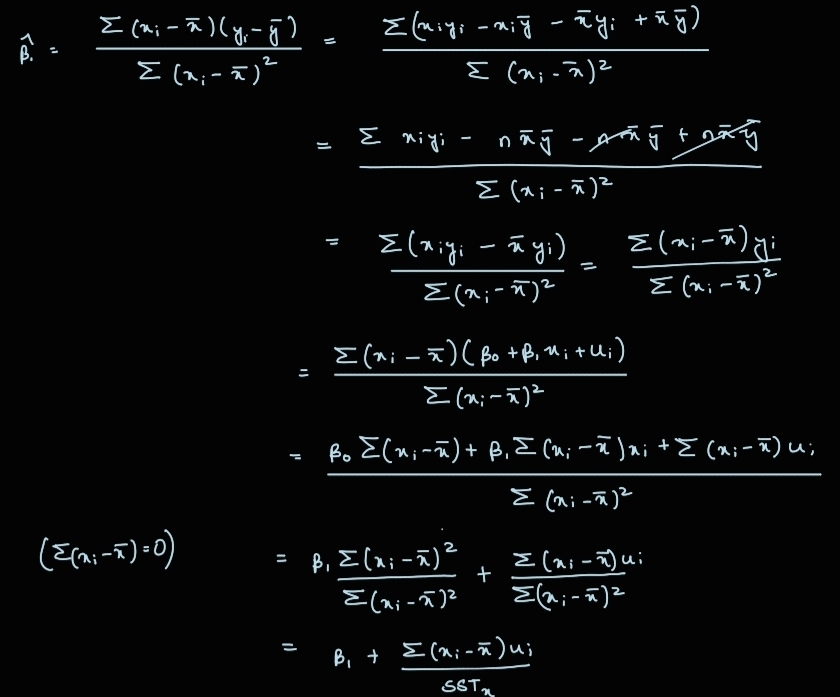 β̂₁ = Σ(xᵢ - x̄)(yᵢ - ȳ) / Σ(xᵢ - x̄)² = Σ(xᵢyᵢ - xᵢȳ - x̄yᵢ + x̄ȳ) / Σ(xᵢ - x̄)²
= Σ xᵢyᵢ - n x̄ȳ - n x̄ȳ + n x̄ȳ / Σ(xᵢ - x̄)²
= Σ(xᵢyᵢ - x̄yᵢ) / Σ(xᵢ - x̄)² = Σ(xᵢ - x̄)yᵢ / Σ(xᵢ - x̄)²
= Σ(xᵢ - x̄)(β₀ + β₁xᵢ + uᵢ) / Σ(xᵢ - x̄)²
= β₀ Σ(xᵢ - x̄) + β₁ Σ(xᵢ - x̄)xᵢ + Σ(xᵢ - x̄)uᵢ / Σ(xᵢ - x̄)²
(Σ(xᵢ - x̄) = 0) = β₁ Σ(xᵢ - x̄)² / Σ(xᵢ - x̄)² + Σ(xᵢ - x̄)uᵢ / Σ(xᵢ - x̄)²
= β₁ + Σ(xᵢ - x̄)uᵢ / SSTₓ